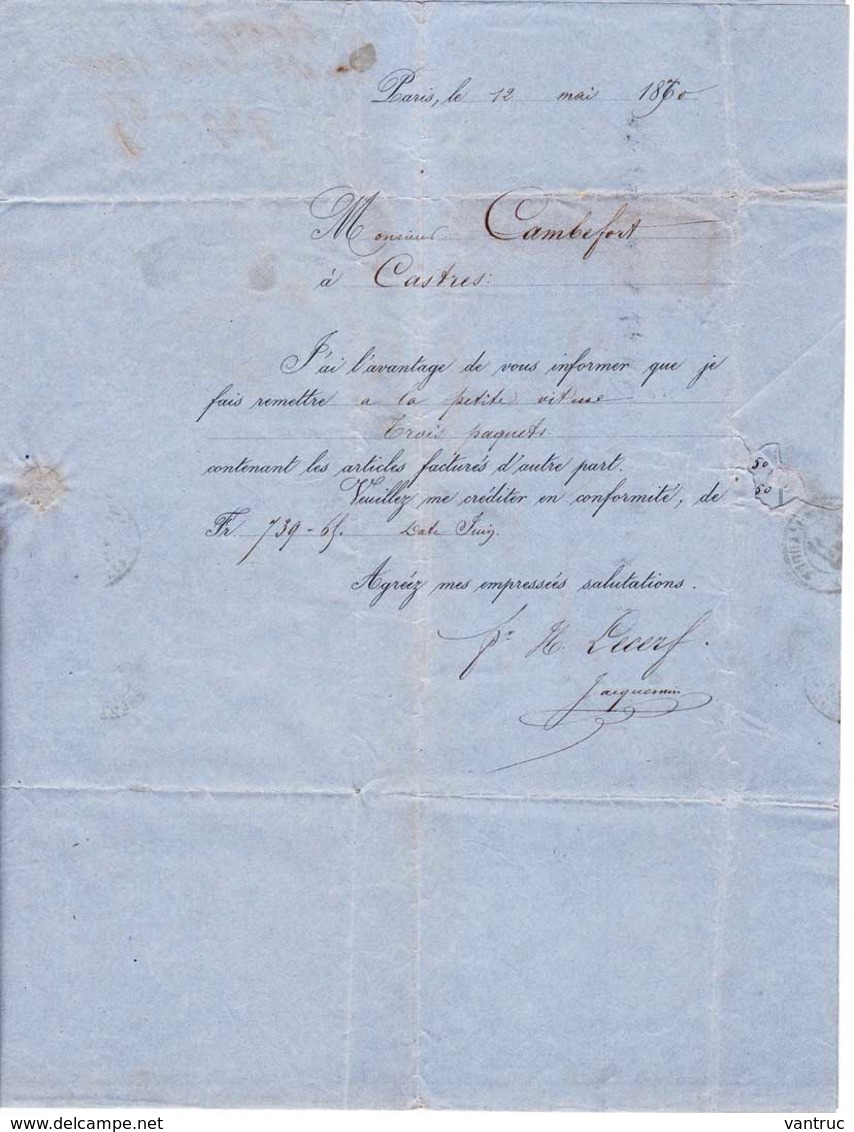 Paris, le 12 mai 1870
Monsieur Cambefort
à Castres
J'ai l'avantage de vous informer que je
fais remettre a la petite vitesse
Trois paquets
contenant les articles facturés d'autre part.
Veuillez me créditer en conformité, de
Fr. 739-65. Date Juin.
50
50
Agréez mes empressées salutations.
pr H. Lecerf.
Jacquemin
delcampe.net
vantruc